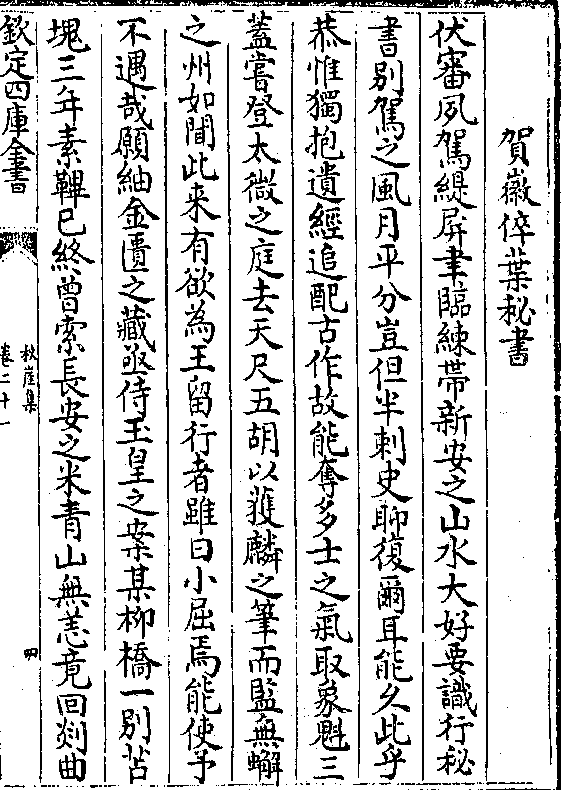 賀徽倅葉秘書
伏審夙駕緹屏聿臨練帶新安之山水大好要識行秘
書別駕之風月平分豈但半刺史聊復爾耳能久此乎
恭惟獨抱遺經追配古作故能奪多士之氣取象魁三
蓋嘗登太微之庭去天尺五胡以獲麟之筆而監無蠏
之州如聞此来有欲為王留行者雖曰小屈焉能使予
不遇哉願紬金匱之藏亟侍玉皇之案某柳橋一別苫
塊三年素鞸已終曽索長安之米青山無恙竟回剡曲
欽定四庫全書
秋崖集
卷二十一
四